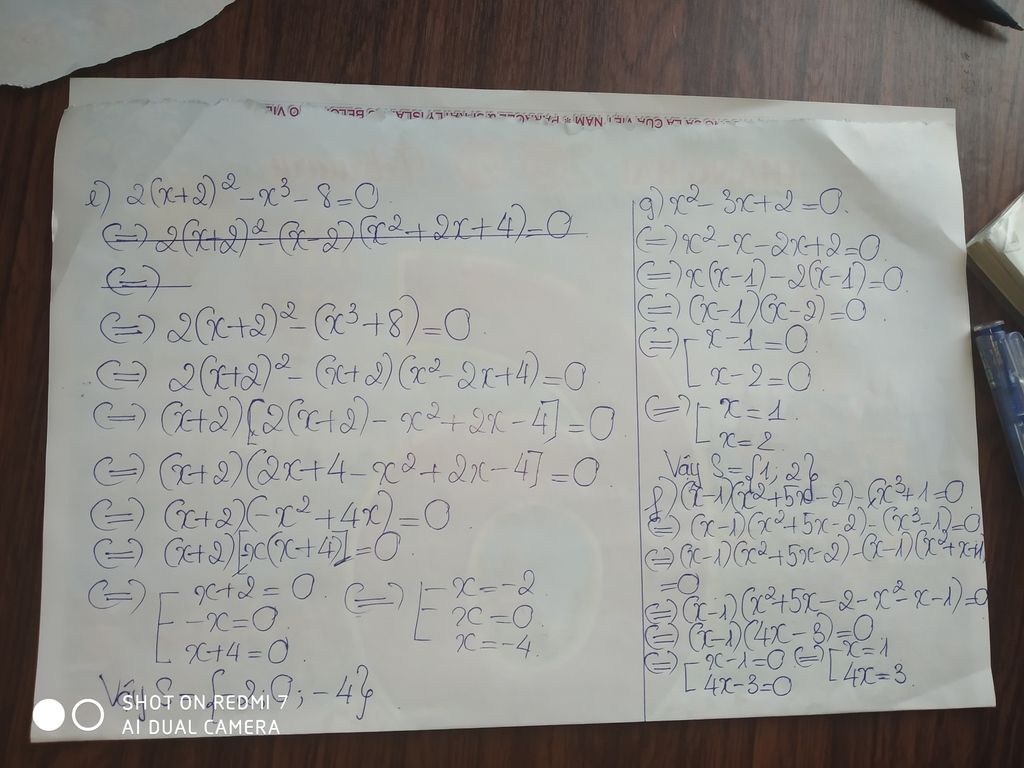 e) 2(x+2)² - x³ - 8 = 0
(=) 2(x+2)² - (x-2)(x²+2x+4) = 0
(=)
(=) 2(x+2)² - (x³+8) = 0
(=) 2(x+2)² - (x+2)(x²-2x+4) = 0
(=) (x+2)[2(x+2) - x²+2x-4] = 0
(=) (x+2)(2x+4-x²+2x-4] = 0
(=) (x+2)(-x²+4x) = 0
(=) (x+2)[x(x+4)] = 0
(=) [x+2=0 (=) [x=-2
-x=0 x=0
x+4=0 x=-4
Vậy S = {-2, 0; -4}
g) x² - 3x + 2 = 0
(=) x² - x - 2x + 2 = 0
(=) x(x-1) - 2(x-1) = 0
(=) (x-1)(x-2) = 0
(=) [x-1=0
x-2=0
(=) [x=1
x=2
Váy S = {1; 2}
f) (x-1)(x²+5x-2) - (x³+1=0
(=) (x-1)(x²+5x-2) - (x³-1)=0
(=) (x-1)(x²+5x-2) - (x-1)(x²+x+1)
=0
(=) (x-1)(x²+5x-2-x²-x-1)=0
(=) (x-1)(4x-3)=0
(=) [x-1=0 (=) [x=1
4x-3=0 4x=3
SHOT ON REDMI 7
AI DUAL CAMERA